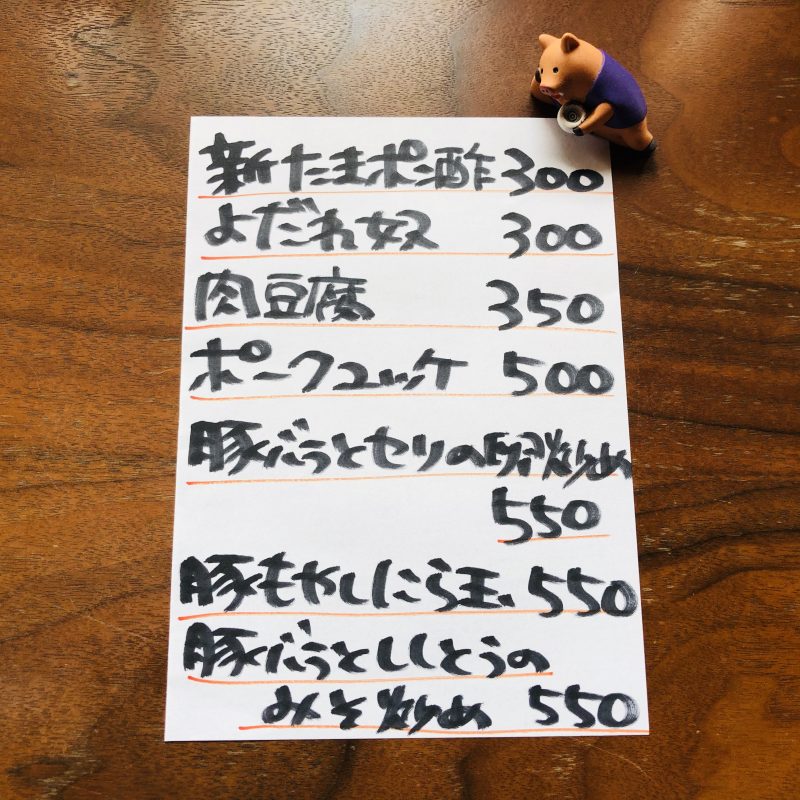 新たまポン酢 300
よだれ奴 300
肉豆腐 350
ポークユッケ 500
豚バラとセリの卵炒め
550
豚もやしにら玉 550
豚バラとししとうの
みそ炒め 550